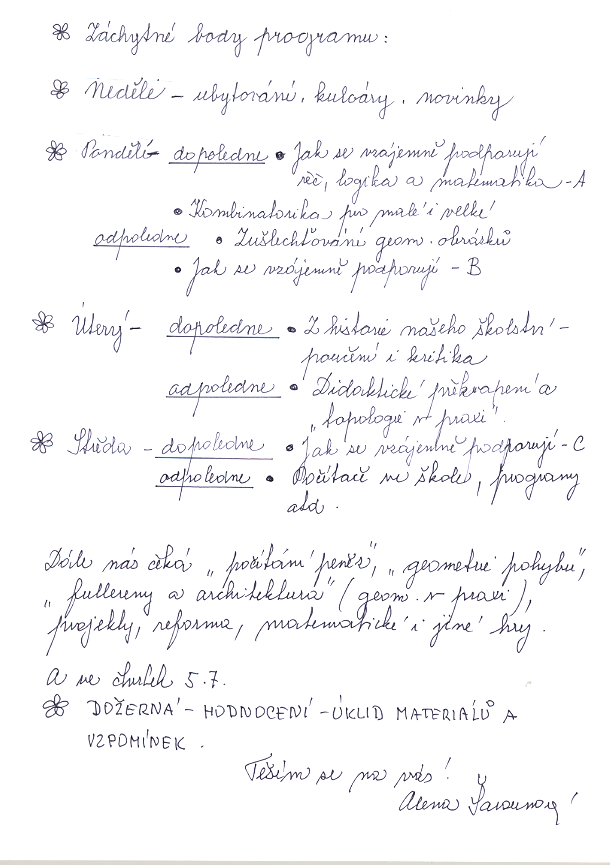 Záchytné body programu:
Neděle – ubytování, kuloáry, novinky
Pondělí – dopoledne • Jak se vzájemně podporují
řeč, logika a matematika – A
• Kombinatorika pro malé i velké
odpoledne • Zušlechťování geom. obrázků
• Jak se vzájemně podporují – B
Úterý – dopoledne • Z historie našeho školství –
poučení i kritika
odpoledne • Didaktické překvapení a
„topologie v praxi".
Středa – dopoledne • Jak se vzájemně podporují – C
odpoledne • Počítače ve škole, programy
atd.
Dále nás čeká „počítání peněz", „geometrie pohybu",
„fullereny a architektura" (geom. v praxi),
projekty, reforma, matematické i jiné hry.
A ve čtvrtek 5.7.
DOŽERNÁ – HODNOCENÍ – ÚKLID MATERIÁLŮ A
VZPOMÍNEK.
Těším se na vás!
Alena Šarounová